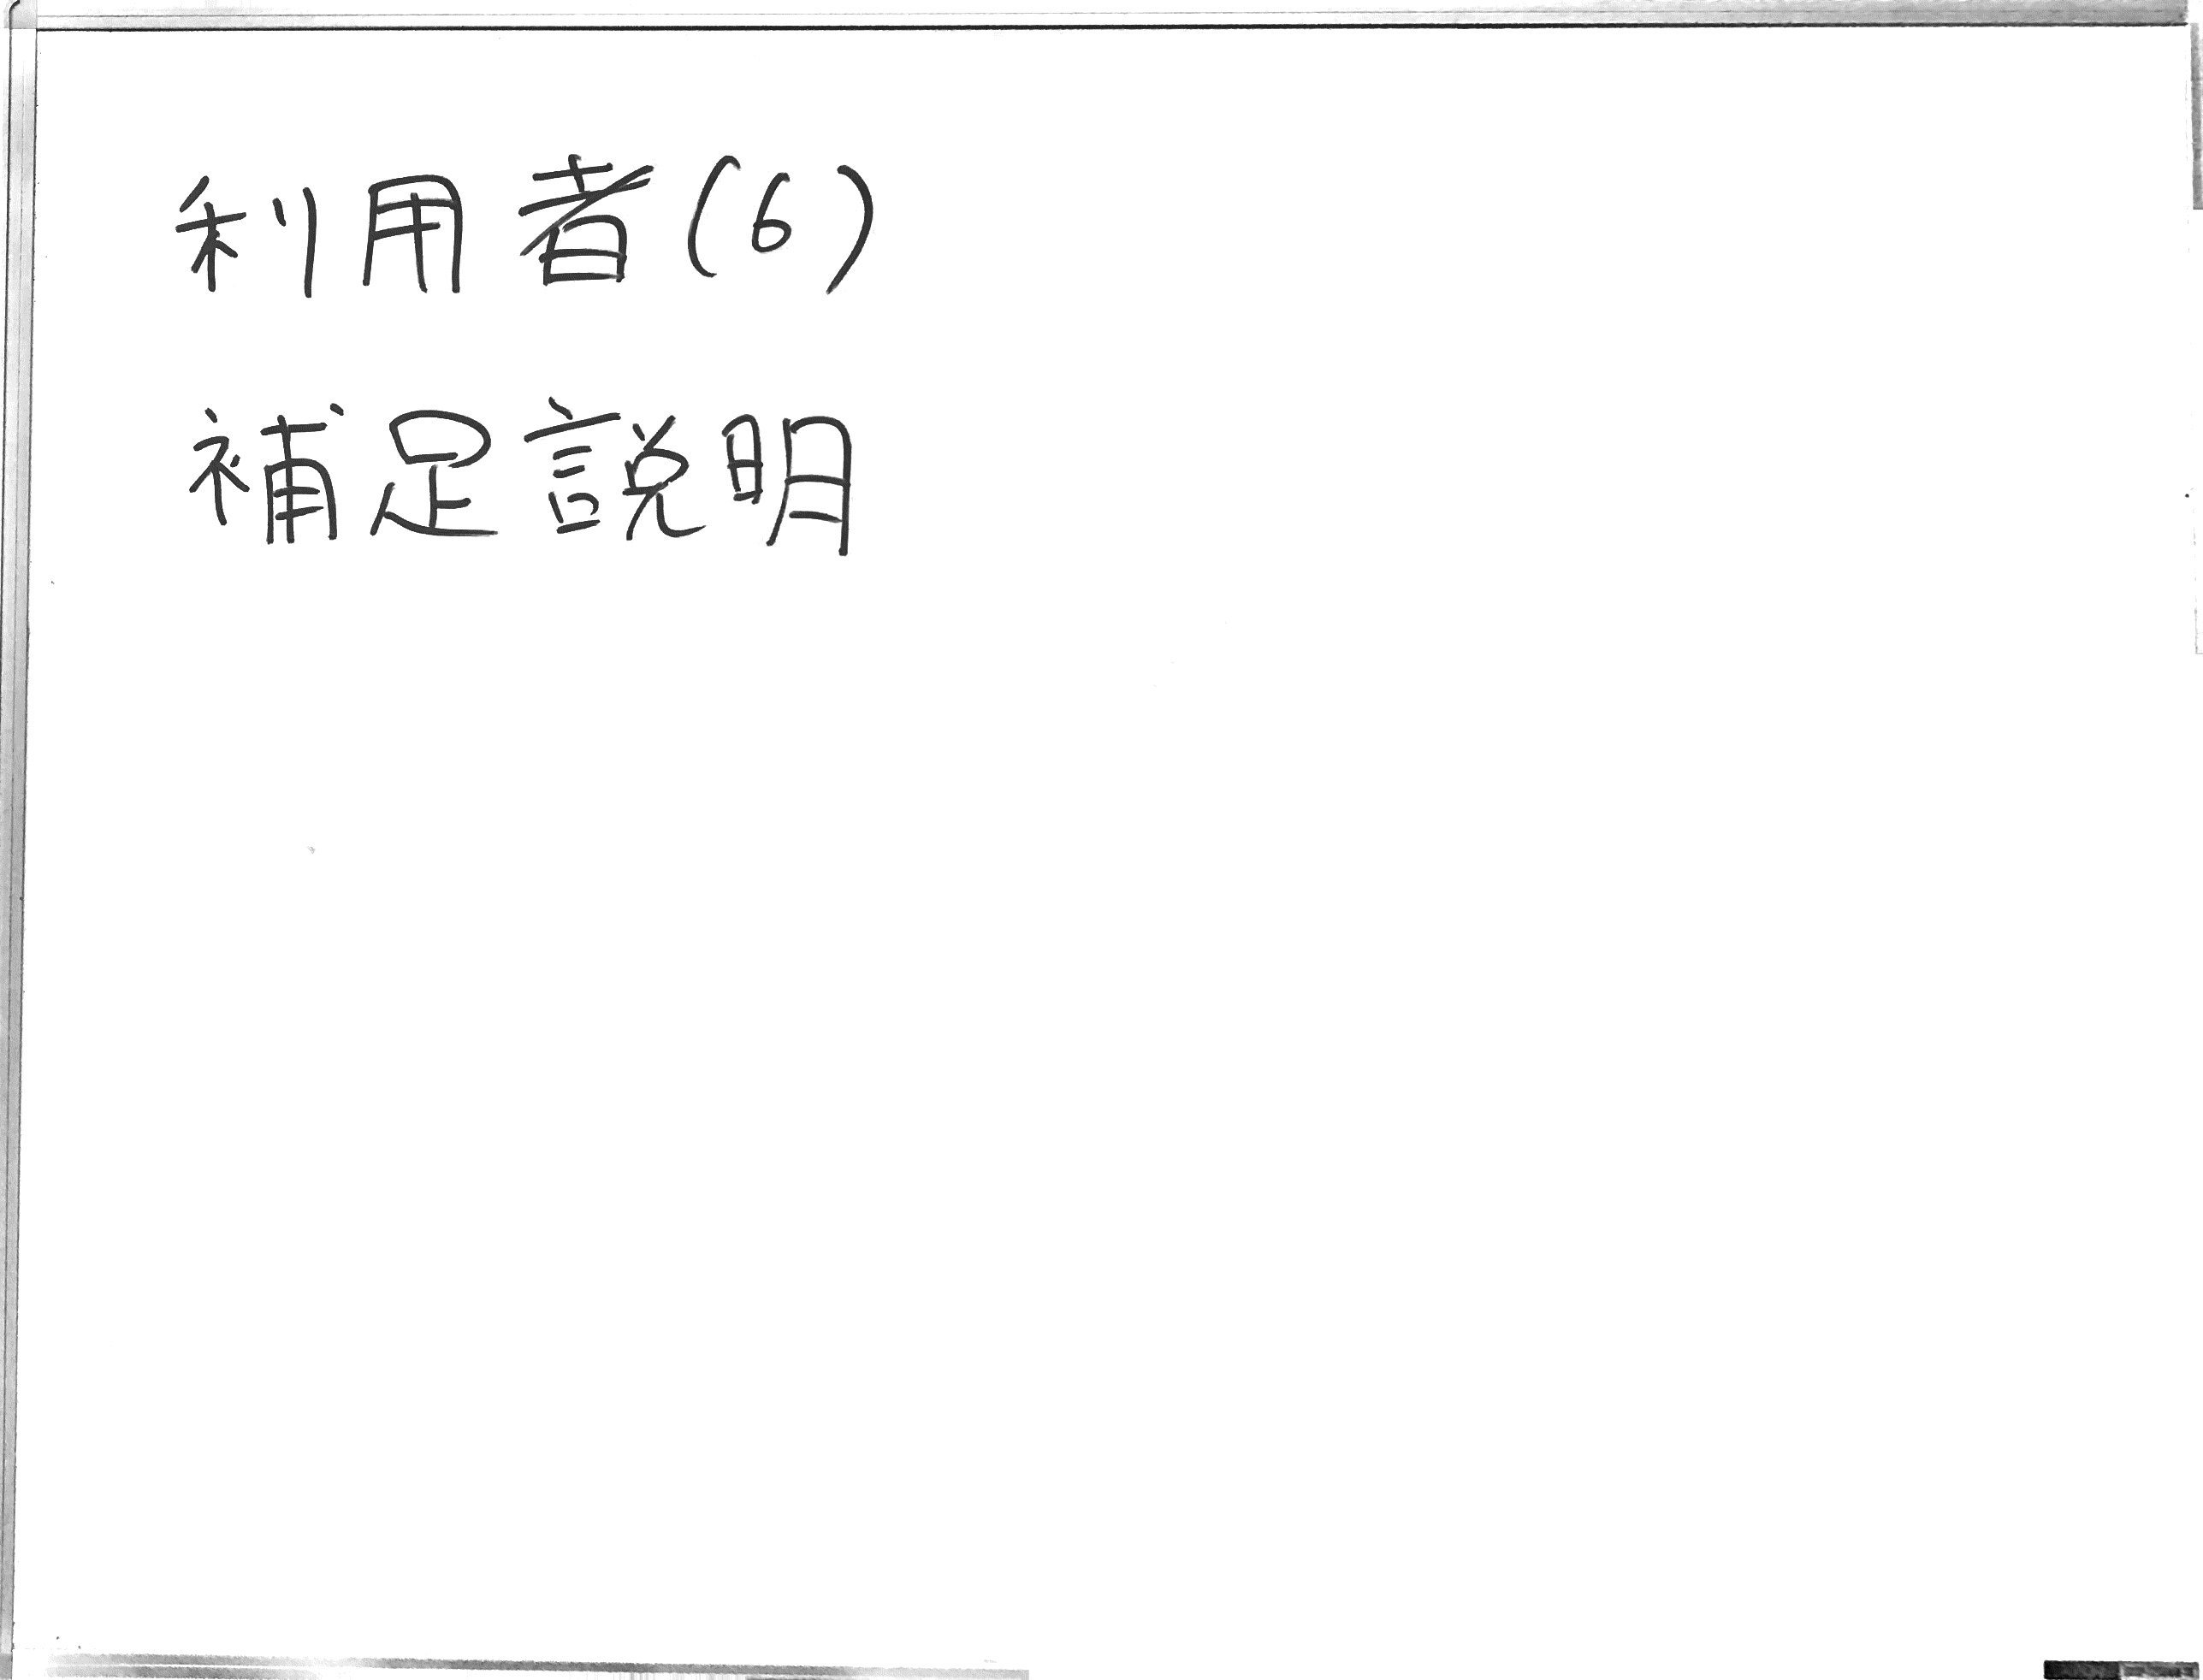 利用者(6)
補足説明